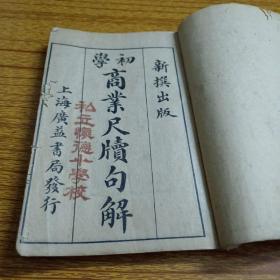 新撰出版
初學
商業尺牘句解
私立懷德小學校
上海廣益書局發行